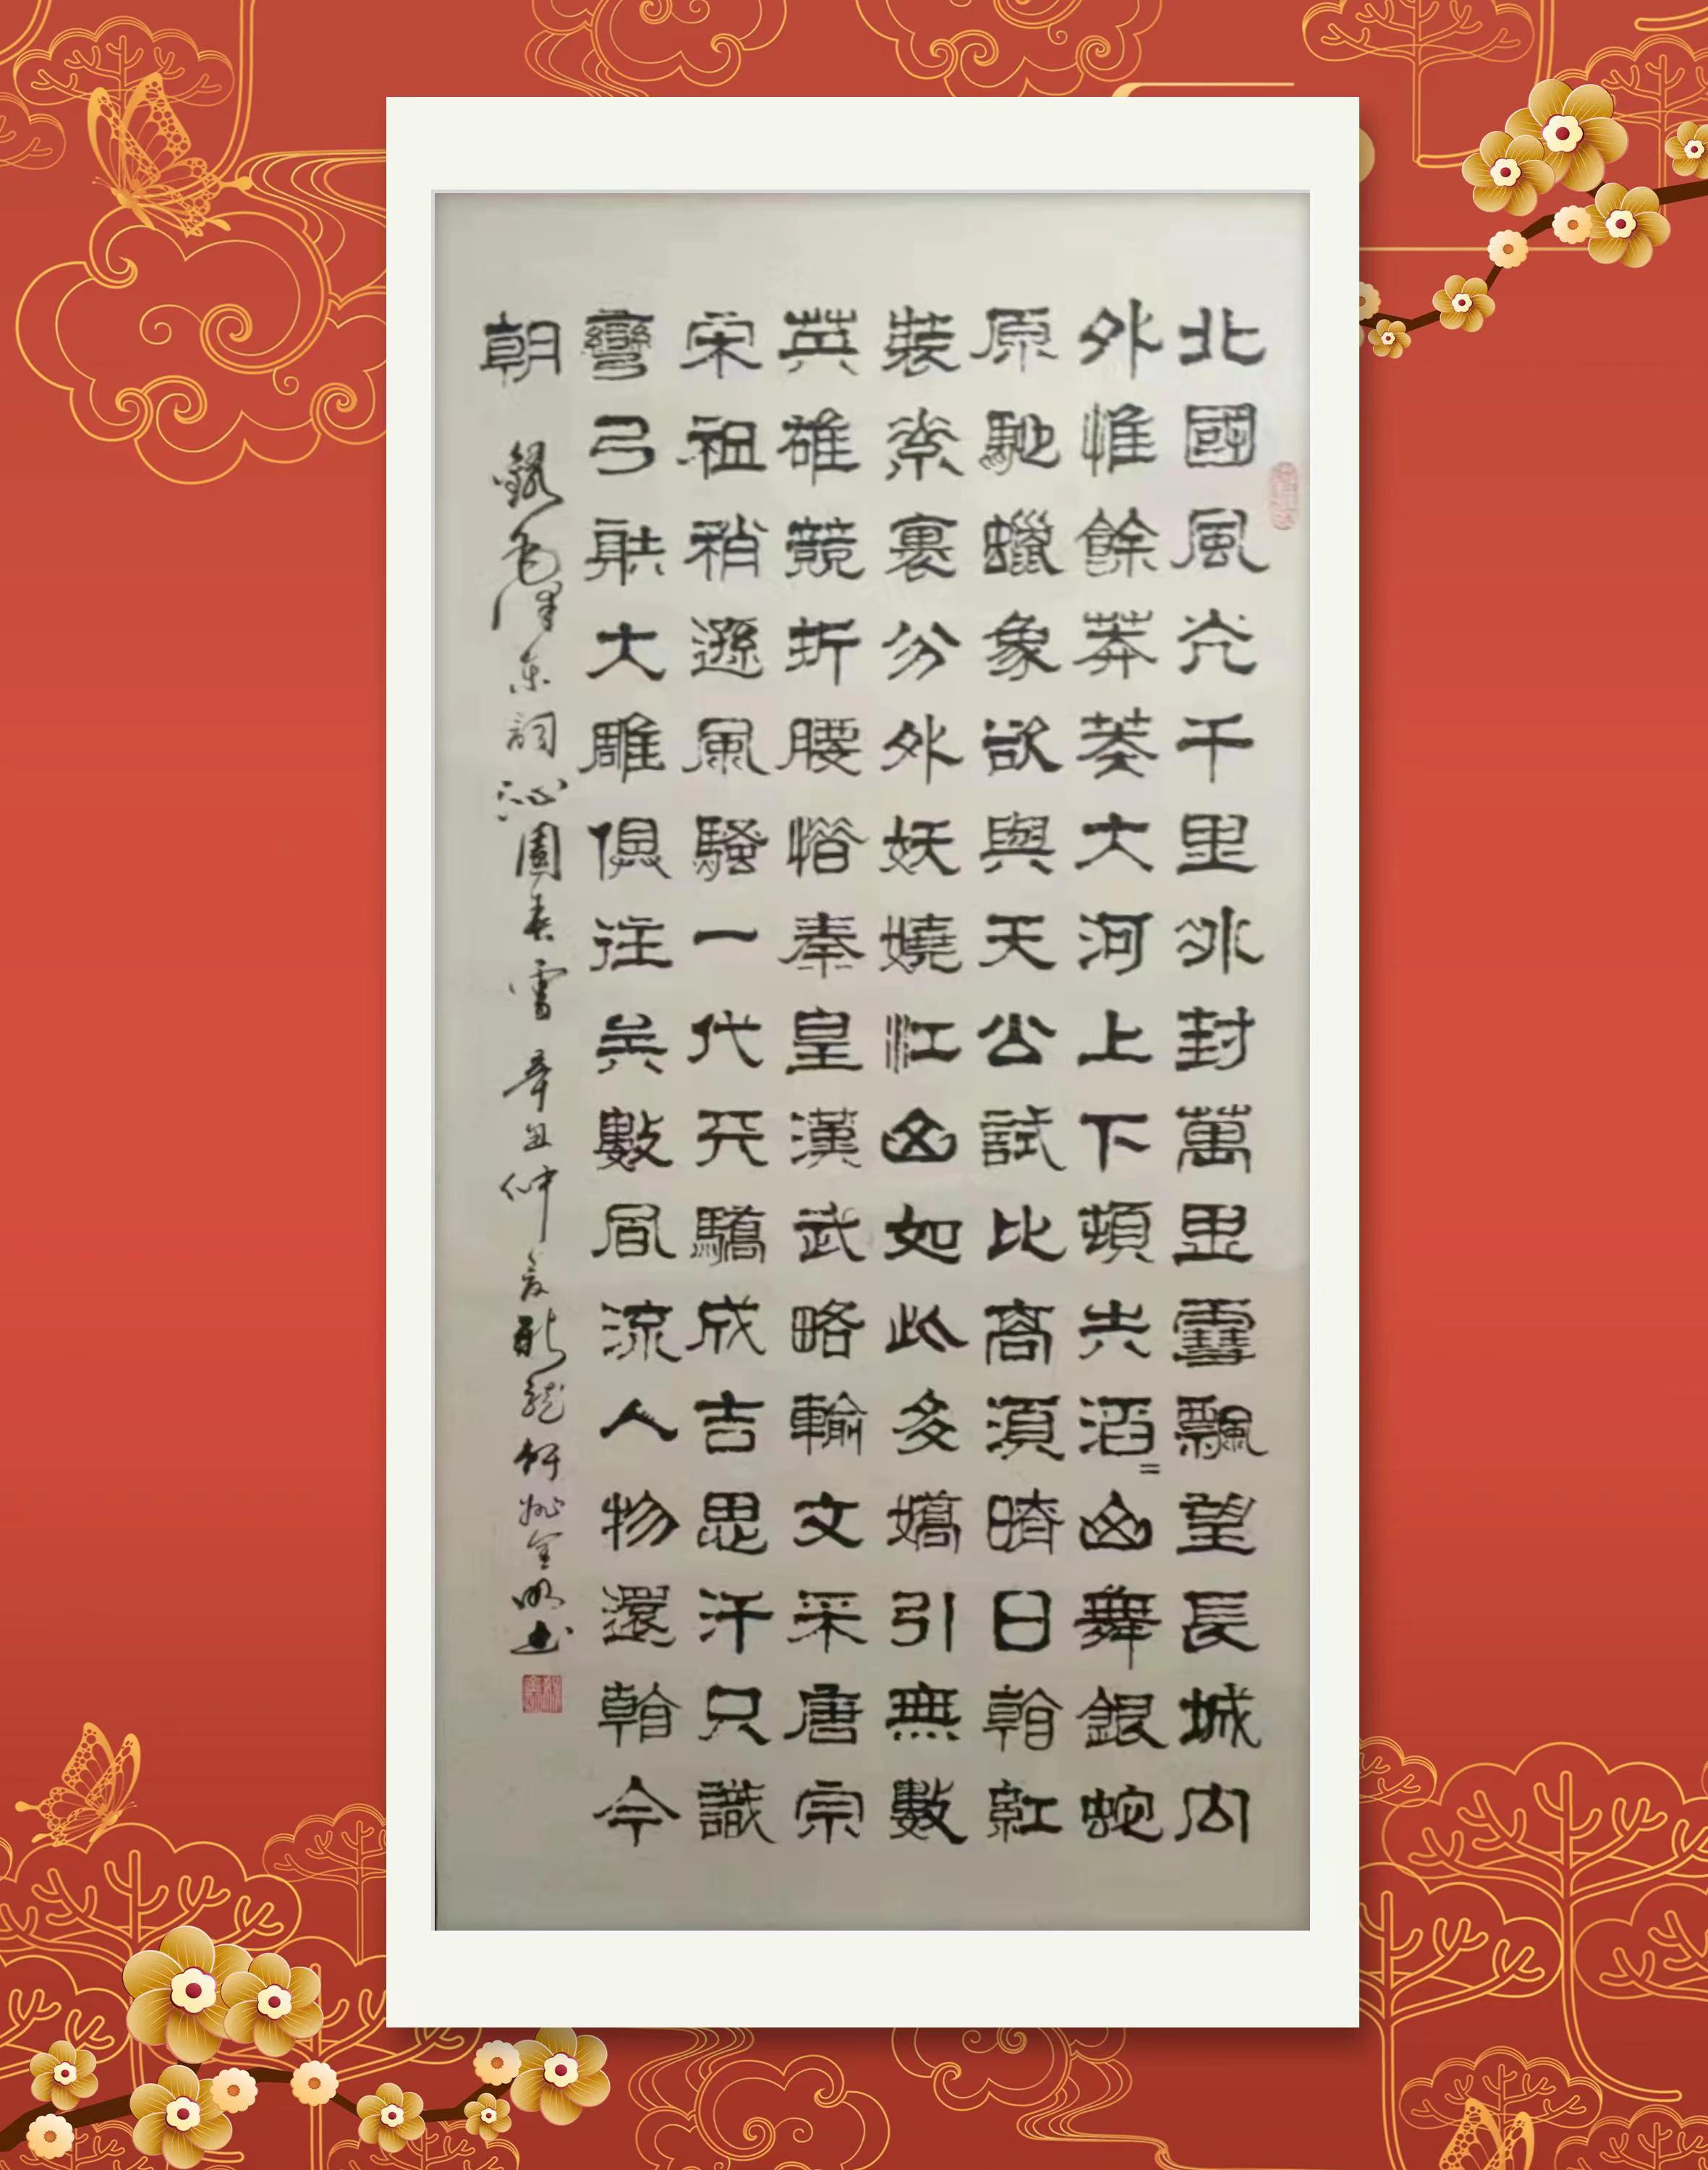 北國風光千里冰封萬里雪飄望長城內
外惟餘莽莽大河上下頓失滔〻山舞銀蛇
原馳蠟象欲與天公試比高須晴日看紅
裝素裹分外妖嬈江山如此多嬌引無數
英雄競折腰惜秦皇漢武略輸文采唐宗
宋祖稍遜風騷一代天驕成吉思汗只識
彎弓射大雕俱往矣數風流人物還看今
朝
錄毛澤東詞沁園春雪 辛丑仲夏 龍 姚金明书